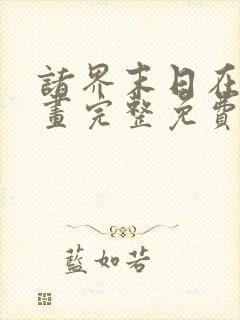 諸界末日在
畫完整免費
藍如若